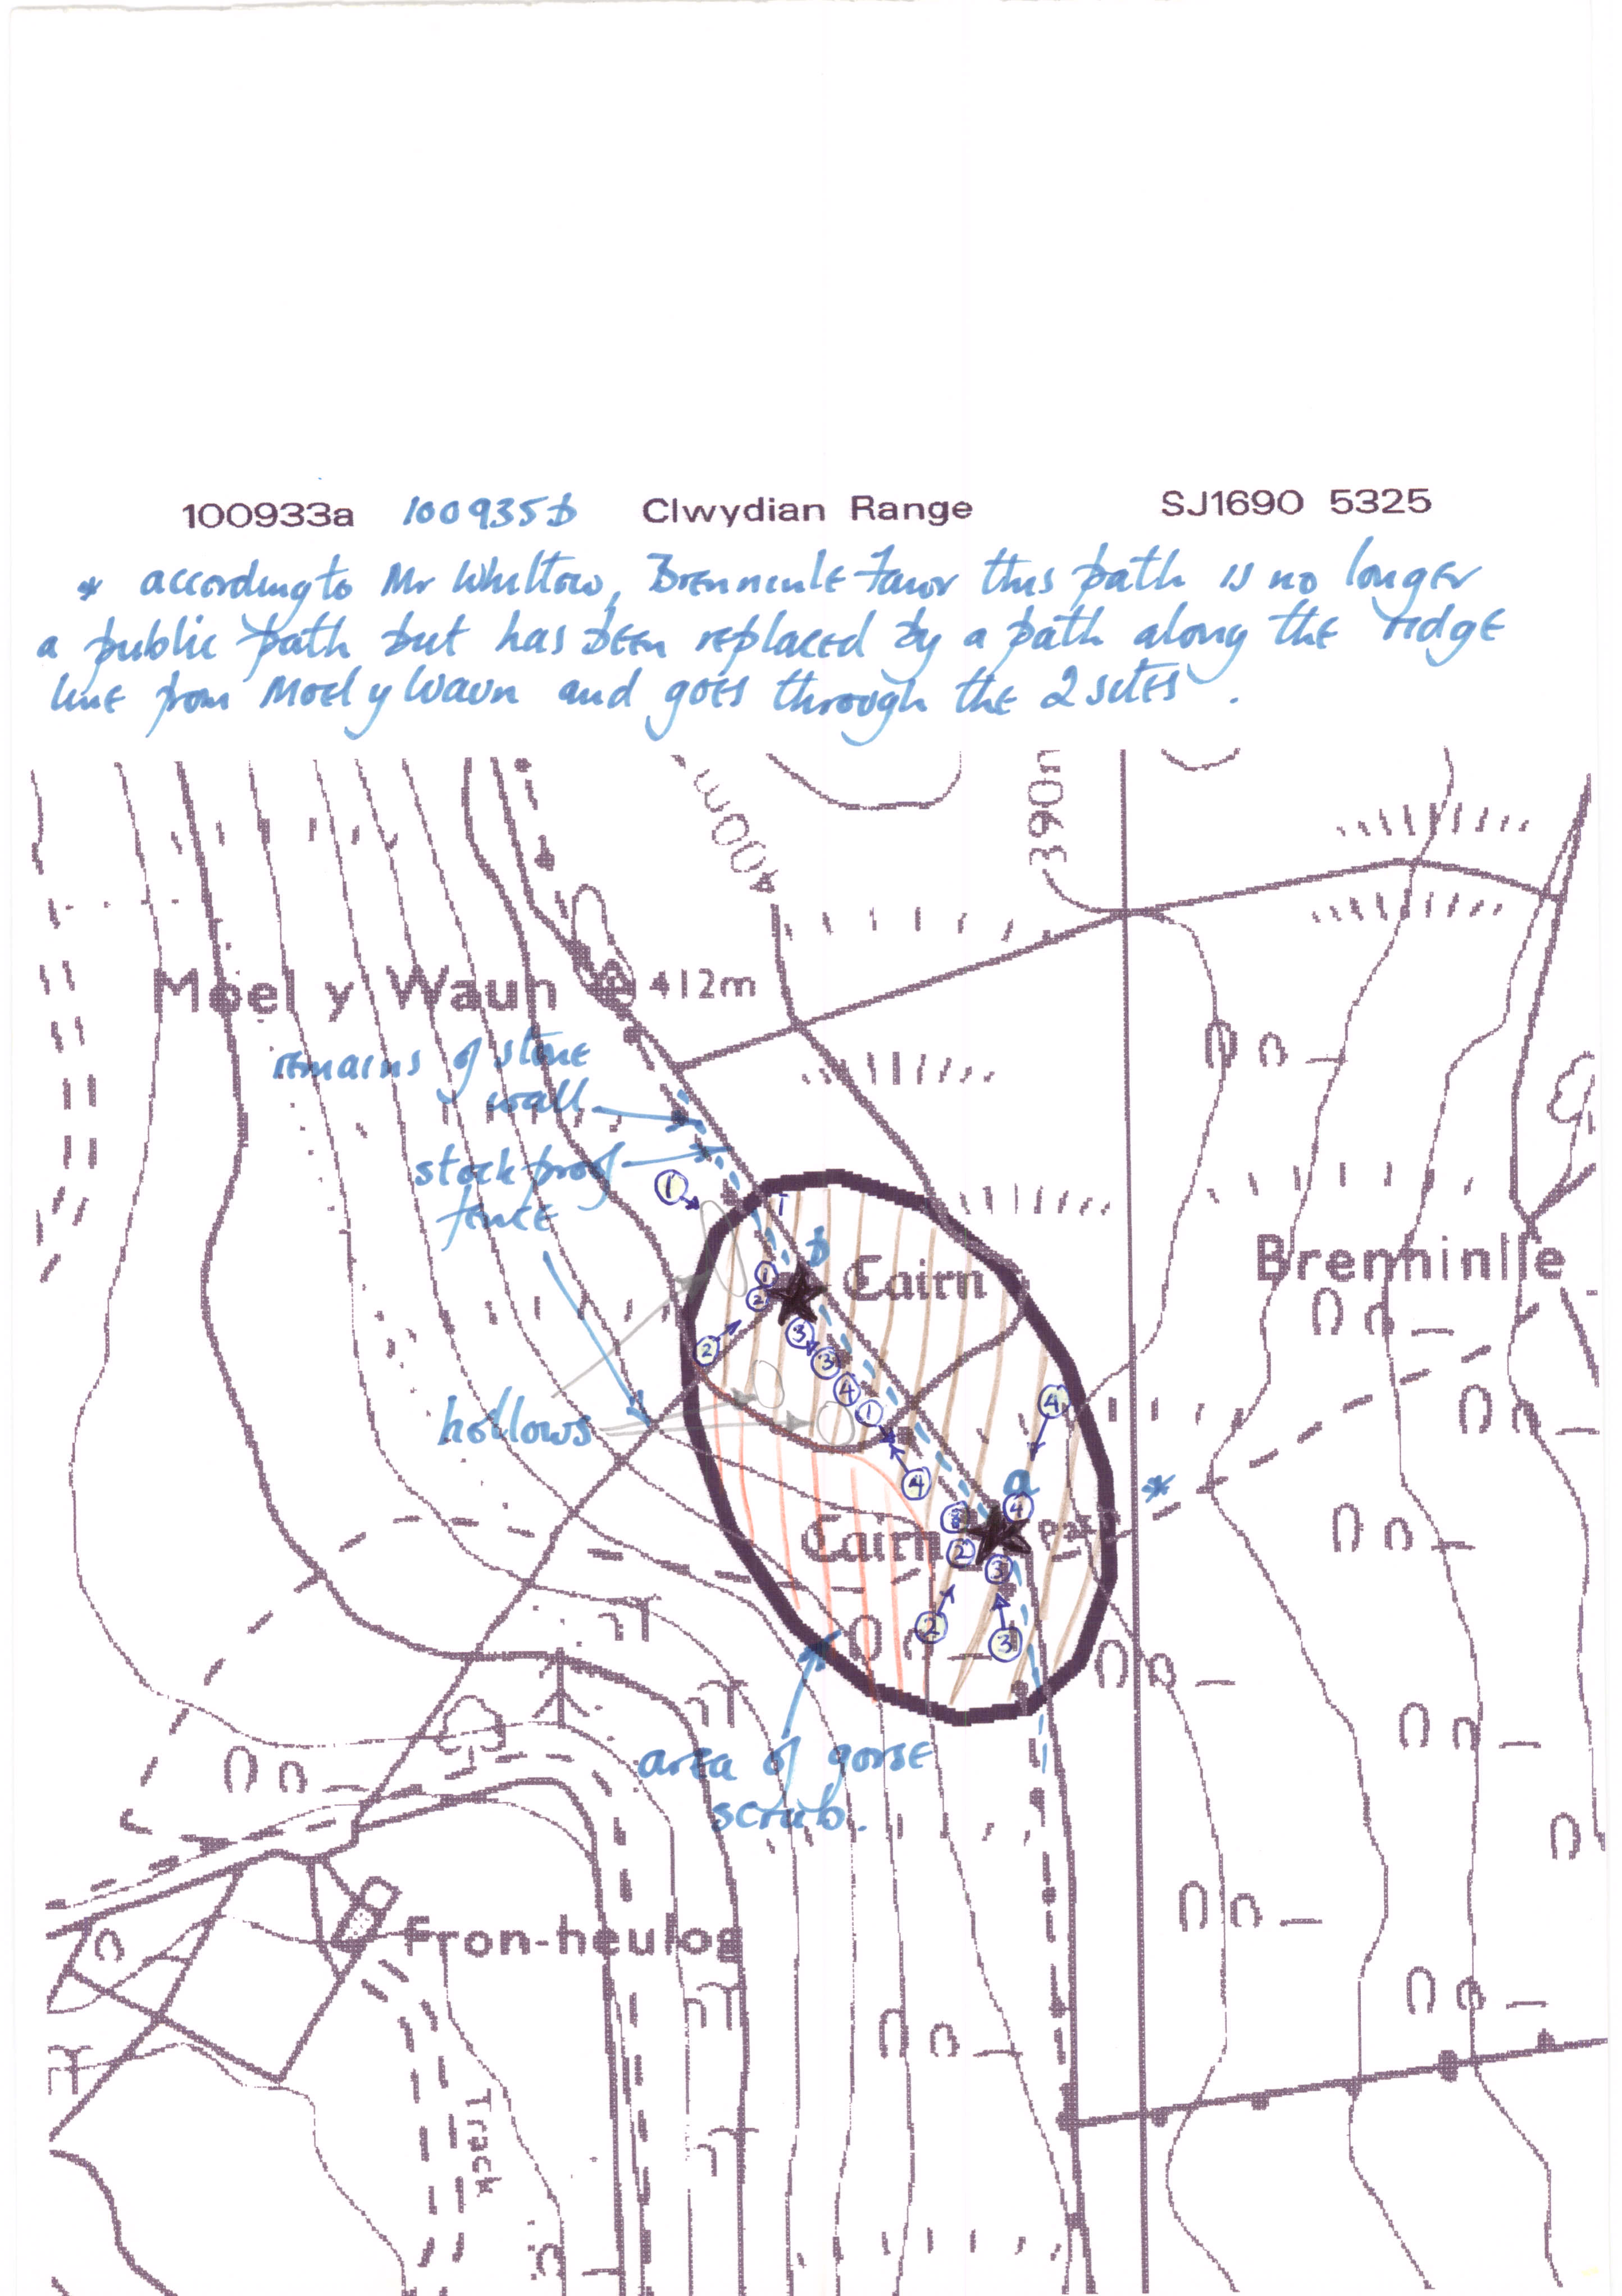 100933a 100935b Clwydian Range SJ1690 5325
* according to Mr Whiltow, Brenninlle Fawr this path is no longer
a public path but has been replaced by a path along the ridge
line from Moel y Waun and goes through the 2 sites.
400m
390m
Moel y Waun 412m
remains of stone
wall
stock proof
fence
1
1
b
Cairn
Brenninlle
1
2
2
3
3
4
1
4
hollows
4
a
*
4
Cairn
2
3
Path
2
3
area of gorse
scrub.
Fron-heulog
Track